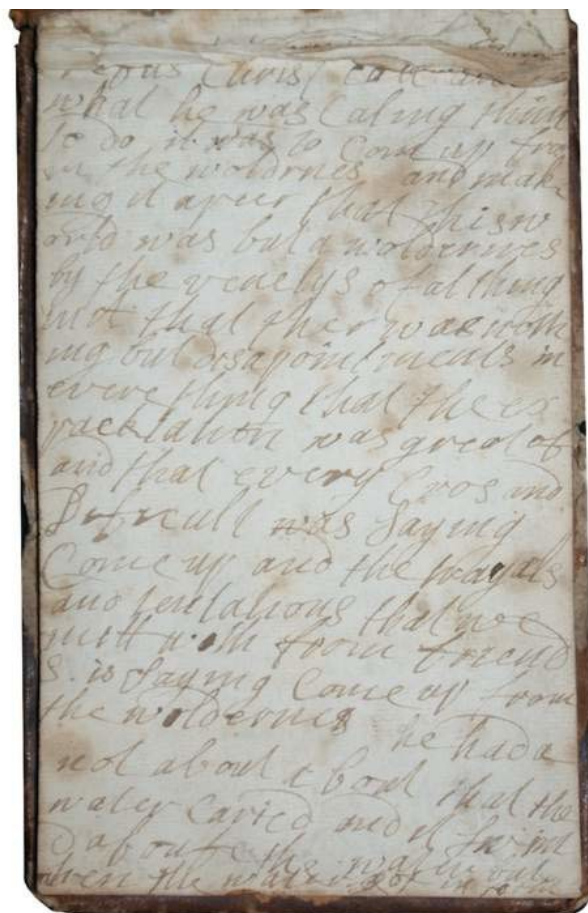 Christ
what he was Caling thim
to do it was to Come up fro
m the woldrnes and mak
ing it apeer that this w
orld was but a wolderness
by the of al thing
not that ther was noth
ing but disapointments in
everething that the ex
packtation was great of
and that every Cros and
Difecult was Saying
Come up and the trayals
and tentations that we
mitt with from friend
s is Saying Come up from
the woldernes he had a
not about a boat that the
water Caried and it swim
d aboute the water but
when the water